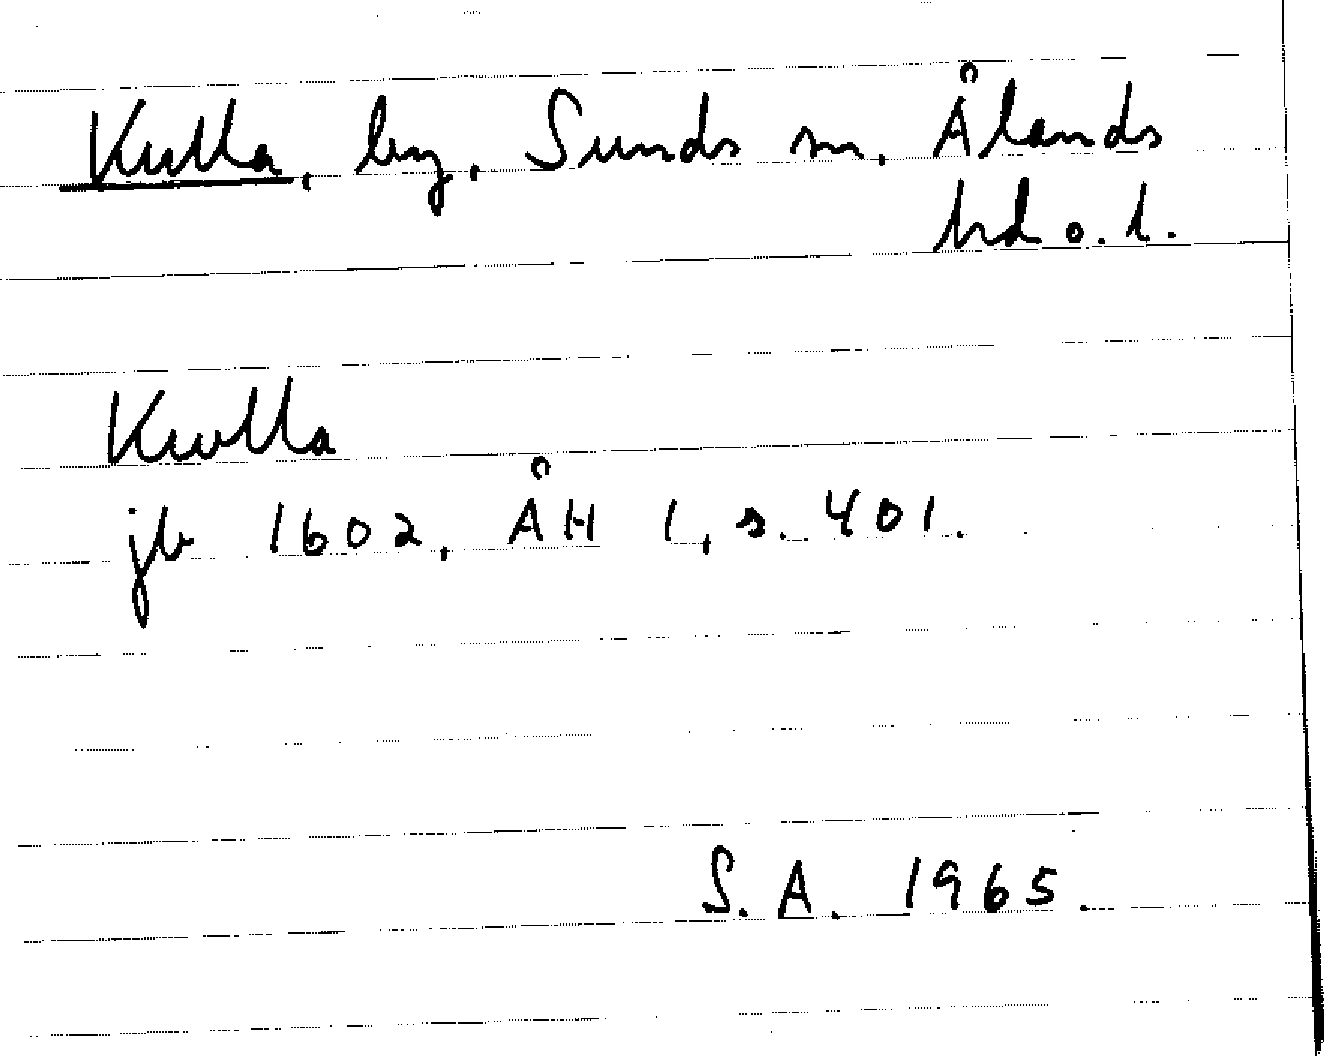 Kulla, by, Sunds sn, Ålands
hd o. l.
Kwlla
jb 1602, ÅH 1, s. 401.
S. A. 1965.